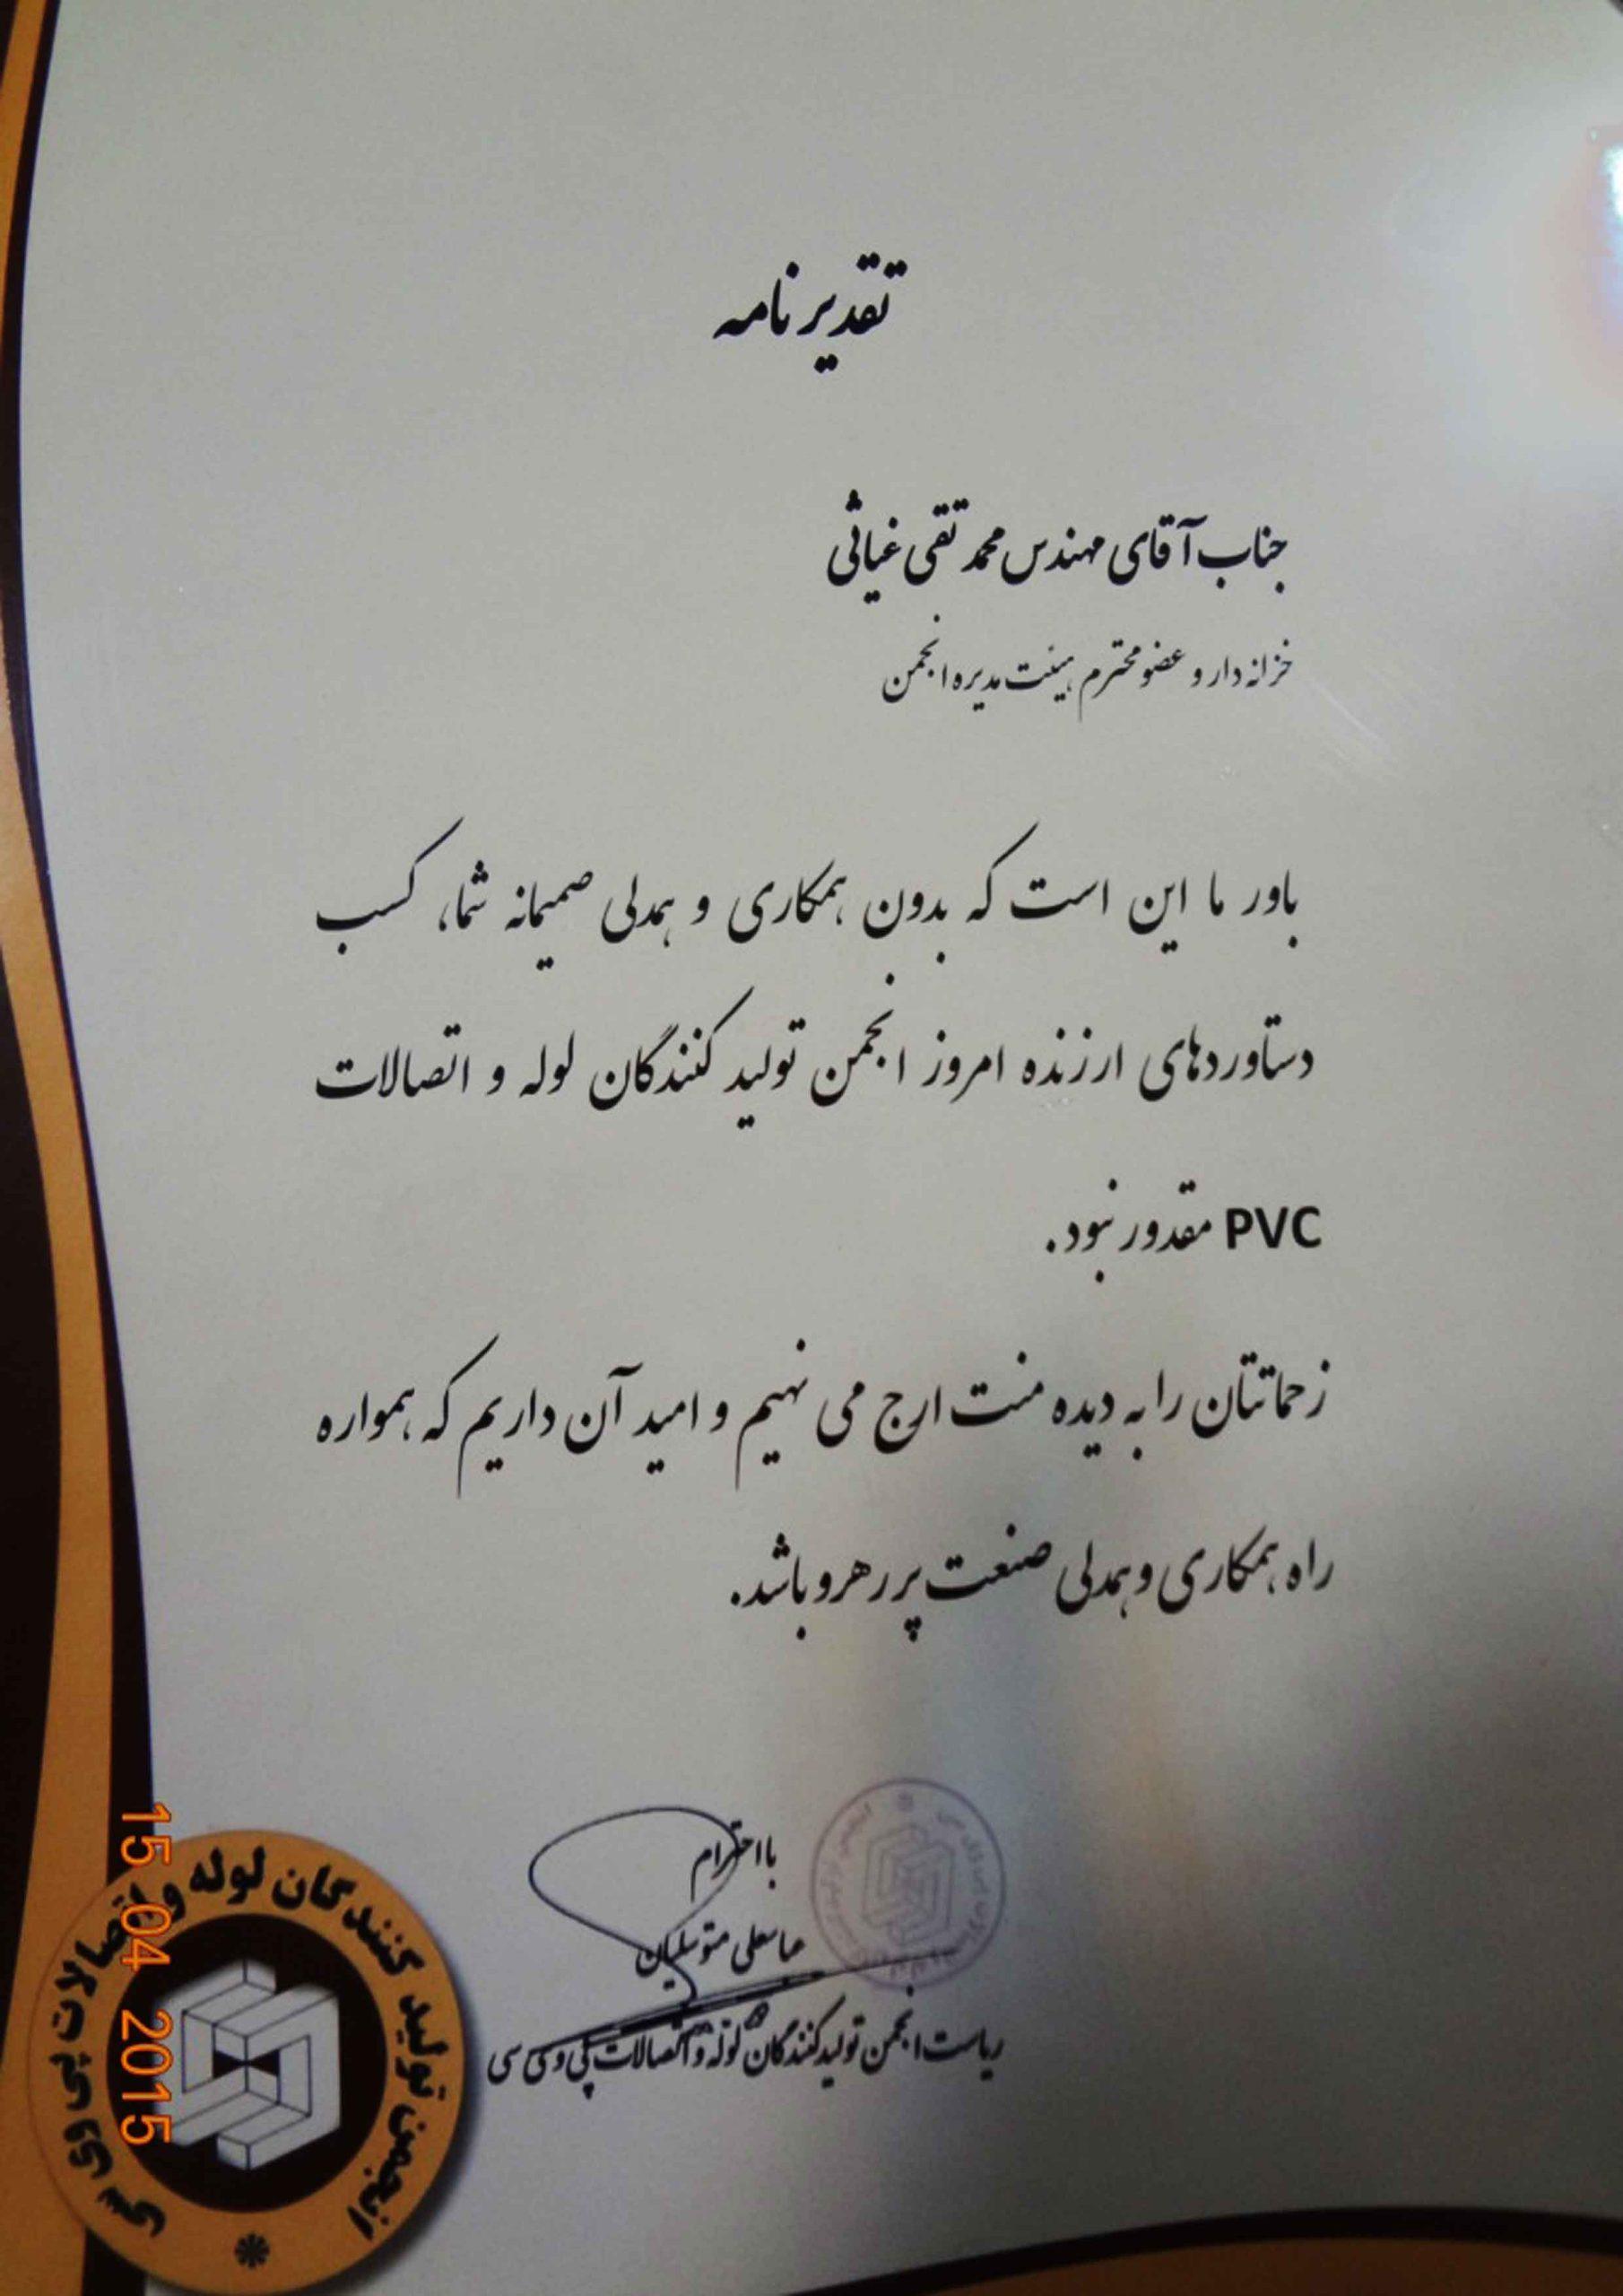 تقدیر نامه
جناب آقای مهندس محمد تقی غیاثی
خزانه دار و عضو محترم هیئت مدیره انجمن
باور ما این است که بدون همکاری و همدلی صمیمانه شما، کسب
دستاوردهای ارزنده امروز انجمن تولید کنندگان لوله و اتصالات
PVC مقدور نبود.
زحماتتان را به دیده منت ارج می نهیم و امید آن داریم که همواره
راه همکاری و همدلی صنعت پر رهرو باشد.
با احترام
متوسلیان
ریاست انجمن تولید کنندگان لوله و اتصالات پی وی سی
انجمن تولید کنندگان لوله و اتصالات پی وی سی
15 04 2015